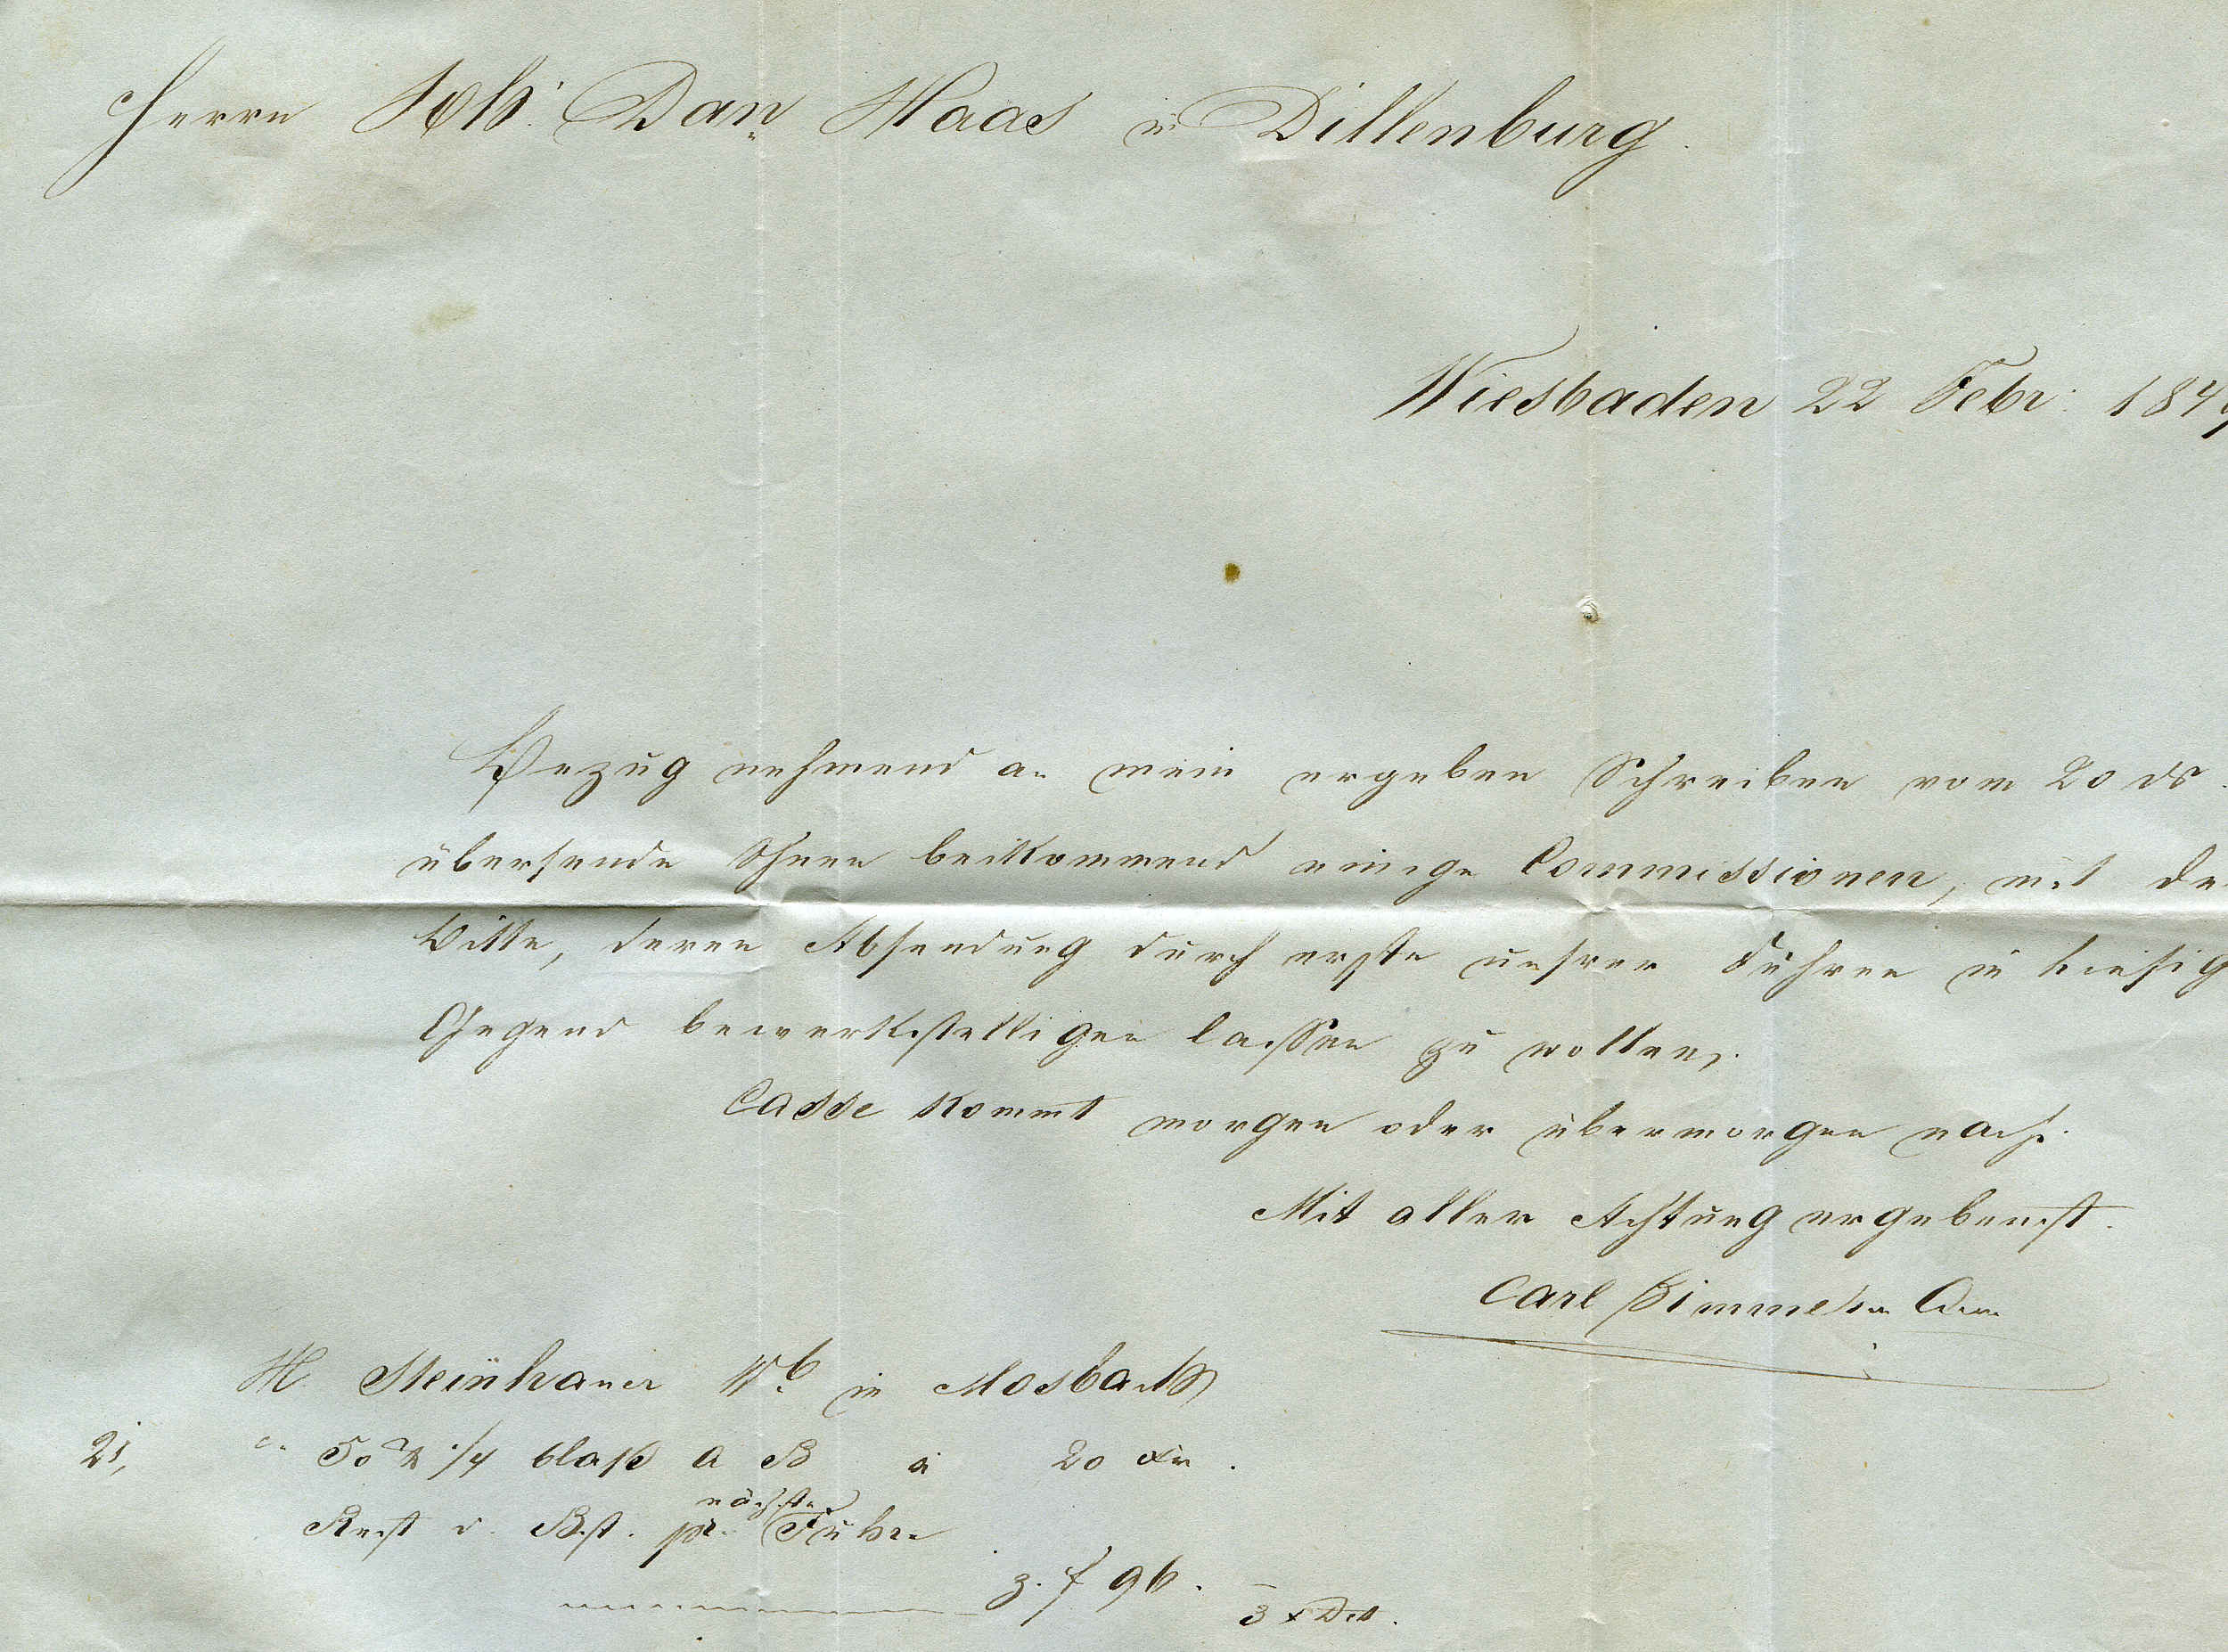 Herrn Joh: Dan Haas in Dillenburg.
Wiesbaden 22 Febr: 184
Bezug nehmend an mein ergeben Schreiben vom 20 ds.
übersende Ihnen beikommend einige Commissionen, mit de
Bitte, deren Absendung durch erste unsrer Fuhren in hiesig
Gegend bewerkstelligen lassen zu wollen.
Casse kommt morgen oder übermorgen nach.
Mit aller Achtung ergebenst.
Carl
H. Steinhauer Wb in Mosbach
21, 50 1/4 blaß A B a 20 Xr.
Rest d. Bst. pr. nächste Fuhre
z. f 96.
3